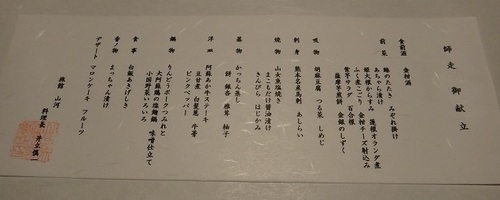 師走 御献立
食前酒 金柑酒
前菜 鰻のたたき みぞれ掛け
あちゃら漬け 蓮根オランダ煮
姫大根からすみ 金柑チーズ射込み
ふく煮こごり 百合根
紫芋サラダ 金銀のしずく
薩摩芋煎餅
吸物 胡麻豆腐 つる菜 しめじ
刺身 熊本名産馬刺 あしらい
焼物 山女魚塩焼き
まこもだけ醤油漬け
きんぴら はじかみ
蓋物 かっちん蒸し
餅 銀杏 椎茸 柚子
洋皿 阿蘇あか牛ステーキ
豆甘煮 白髪葱 牛蒡
ピンクペッパー
鍋物 りんどうポークつみれと
大阿蘇鶏の塩麹鍋 味噌仕立て
小国野菜いろいろ
食事 白飯あきげしき
香ノ物 まっちゃん漬け
デザート マロンケーキ フルーツ
旅館 山河
料理長 井立慎一